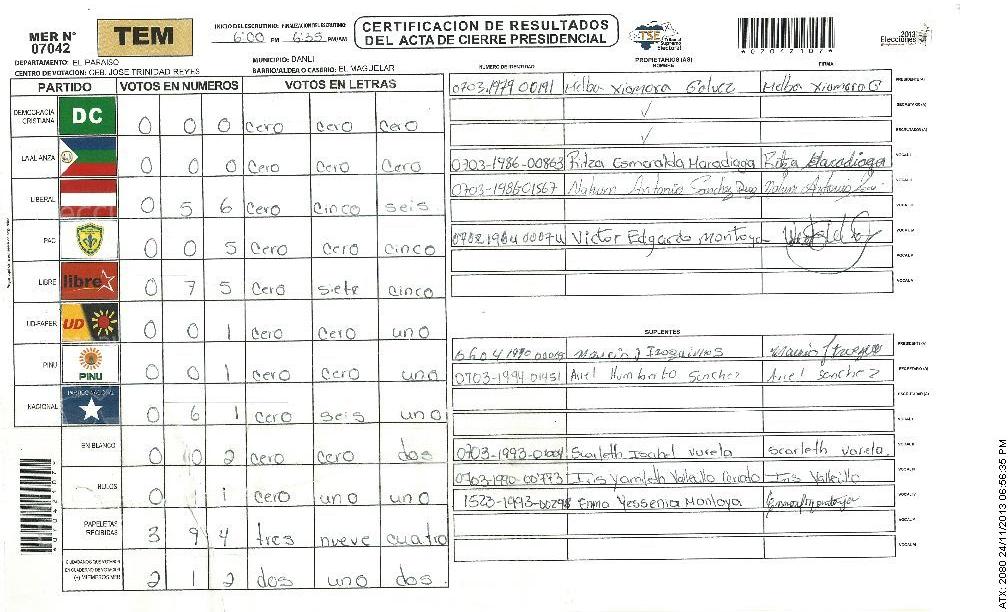 MER N° 07042
TEM
INICIO DEL ESCRUTINIO: 6:00 PM FINALIZACION DEL ESCRUTINIO: 6:35 PM/AM
CERTIFICACION DE RESULTADOS DEL ACTA DE CIERRE PRESIDENCIAL
TSE Tribunal Supremo Electoral
2013 Elecciones
DEPARTAMENTO: EL PARAISO
MUNICIPIO: DANLI
CENTRO DE VOTACION: CEB. JOSE TRINIDAD REYES
BARRIO/ALDEA O CASERIO: EL MAGUELAR
PARTIDO VOTOS EN NUMEROS VOTOS EN LETRAS
DEMOCRACIA CRISTIANA DC 0 0 0 cero cero cero
LA ALIANZA 0 0 0 cero cero cero
LIBERAL 0 5 6 cero cinco seis
PAC 0 0 5 cero cero cinco
LIBRE libre 0 7 5 cero siete cinco
UD-FAPER UD 0 0 1 cero cero uno
PINU PINU 0 0 1 cero cero uno
NACIONAL PARTIDO NACIONAL 0 6 1 cero seis uno
EN BLANCO 0 0 2 cero cero dos
NULOS 0 1 1 cero uno uno
PAPELETAS RECIBIDAS 3 9 4 tres nueve cuatro
CIUDADANOS QUE VOTARON EN CUADERNO DE VOTACION (+) MIEMBROS MER 2 1 2 dos uno dos
PROPIETARIOS (AS)
NUMERO DE IDENTIDAD NOMBRE FIRMA
0703-1979-00191 Melba Xiomara Melba Xiomara G PRESIDENTE(A)
✓ SECRETARIO (A)
✓ ESCRUTADOR (A)
0703-1986-00863 Ritza Esmeralda Haradiaga Ritza Haradiaga VOCAL I
0703-1986-01567 Nahum Antonio Sanchez Nahum Antonio
Victor Edgardo Montoya
SUPLENTES
PRESIDENTE (A)
0703-1994-01451 Ariel Humberto Sanchez Ariel Sanchez SECRETARIO (A)
ESCRUTADOR (A)
VOCAL I
Scarleth Isabel Varela Scarleth Varela
0703-1990-00773 Iris Yamileth Vallecillo Iris Vallecillo
Enma Yessenia Montoya
ATX: 2080 24/11/2013 06:56:35 PM